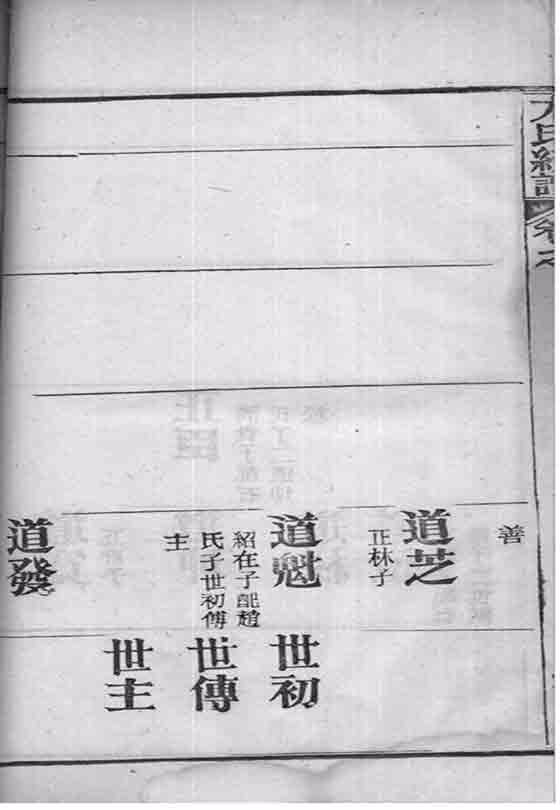 氏
卷之
善
道芝
正林子
道魁
紹在子配趙
氏子世初傳
主
道發
世初
世傳
世主